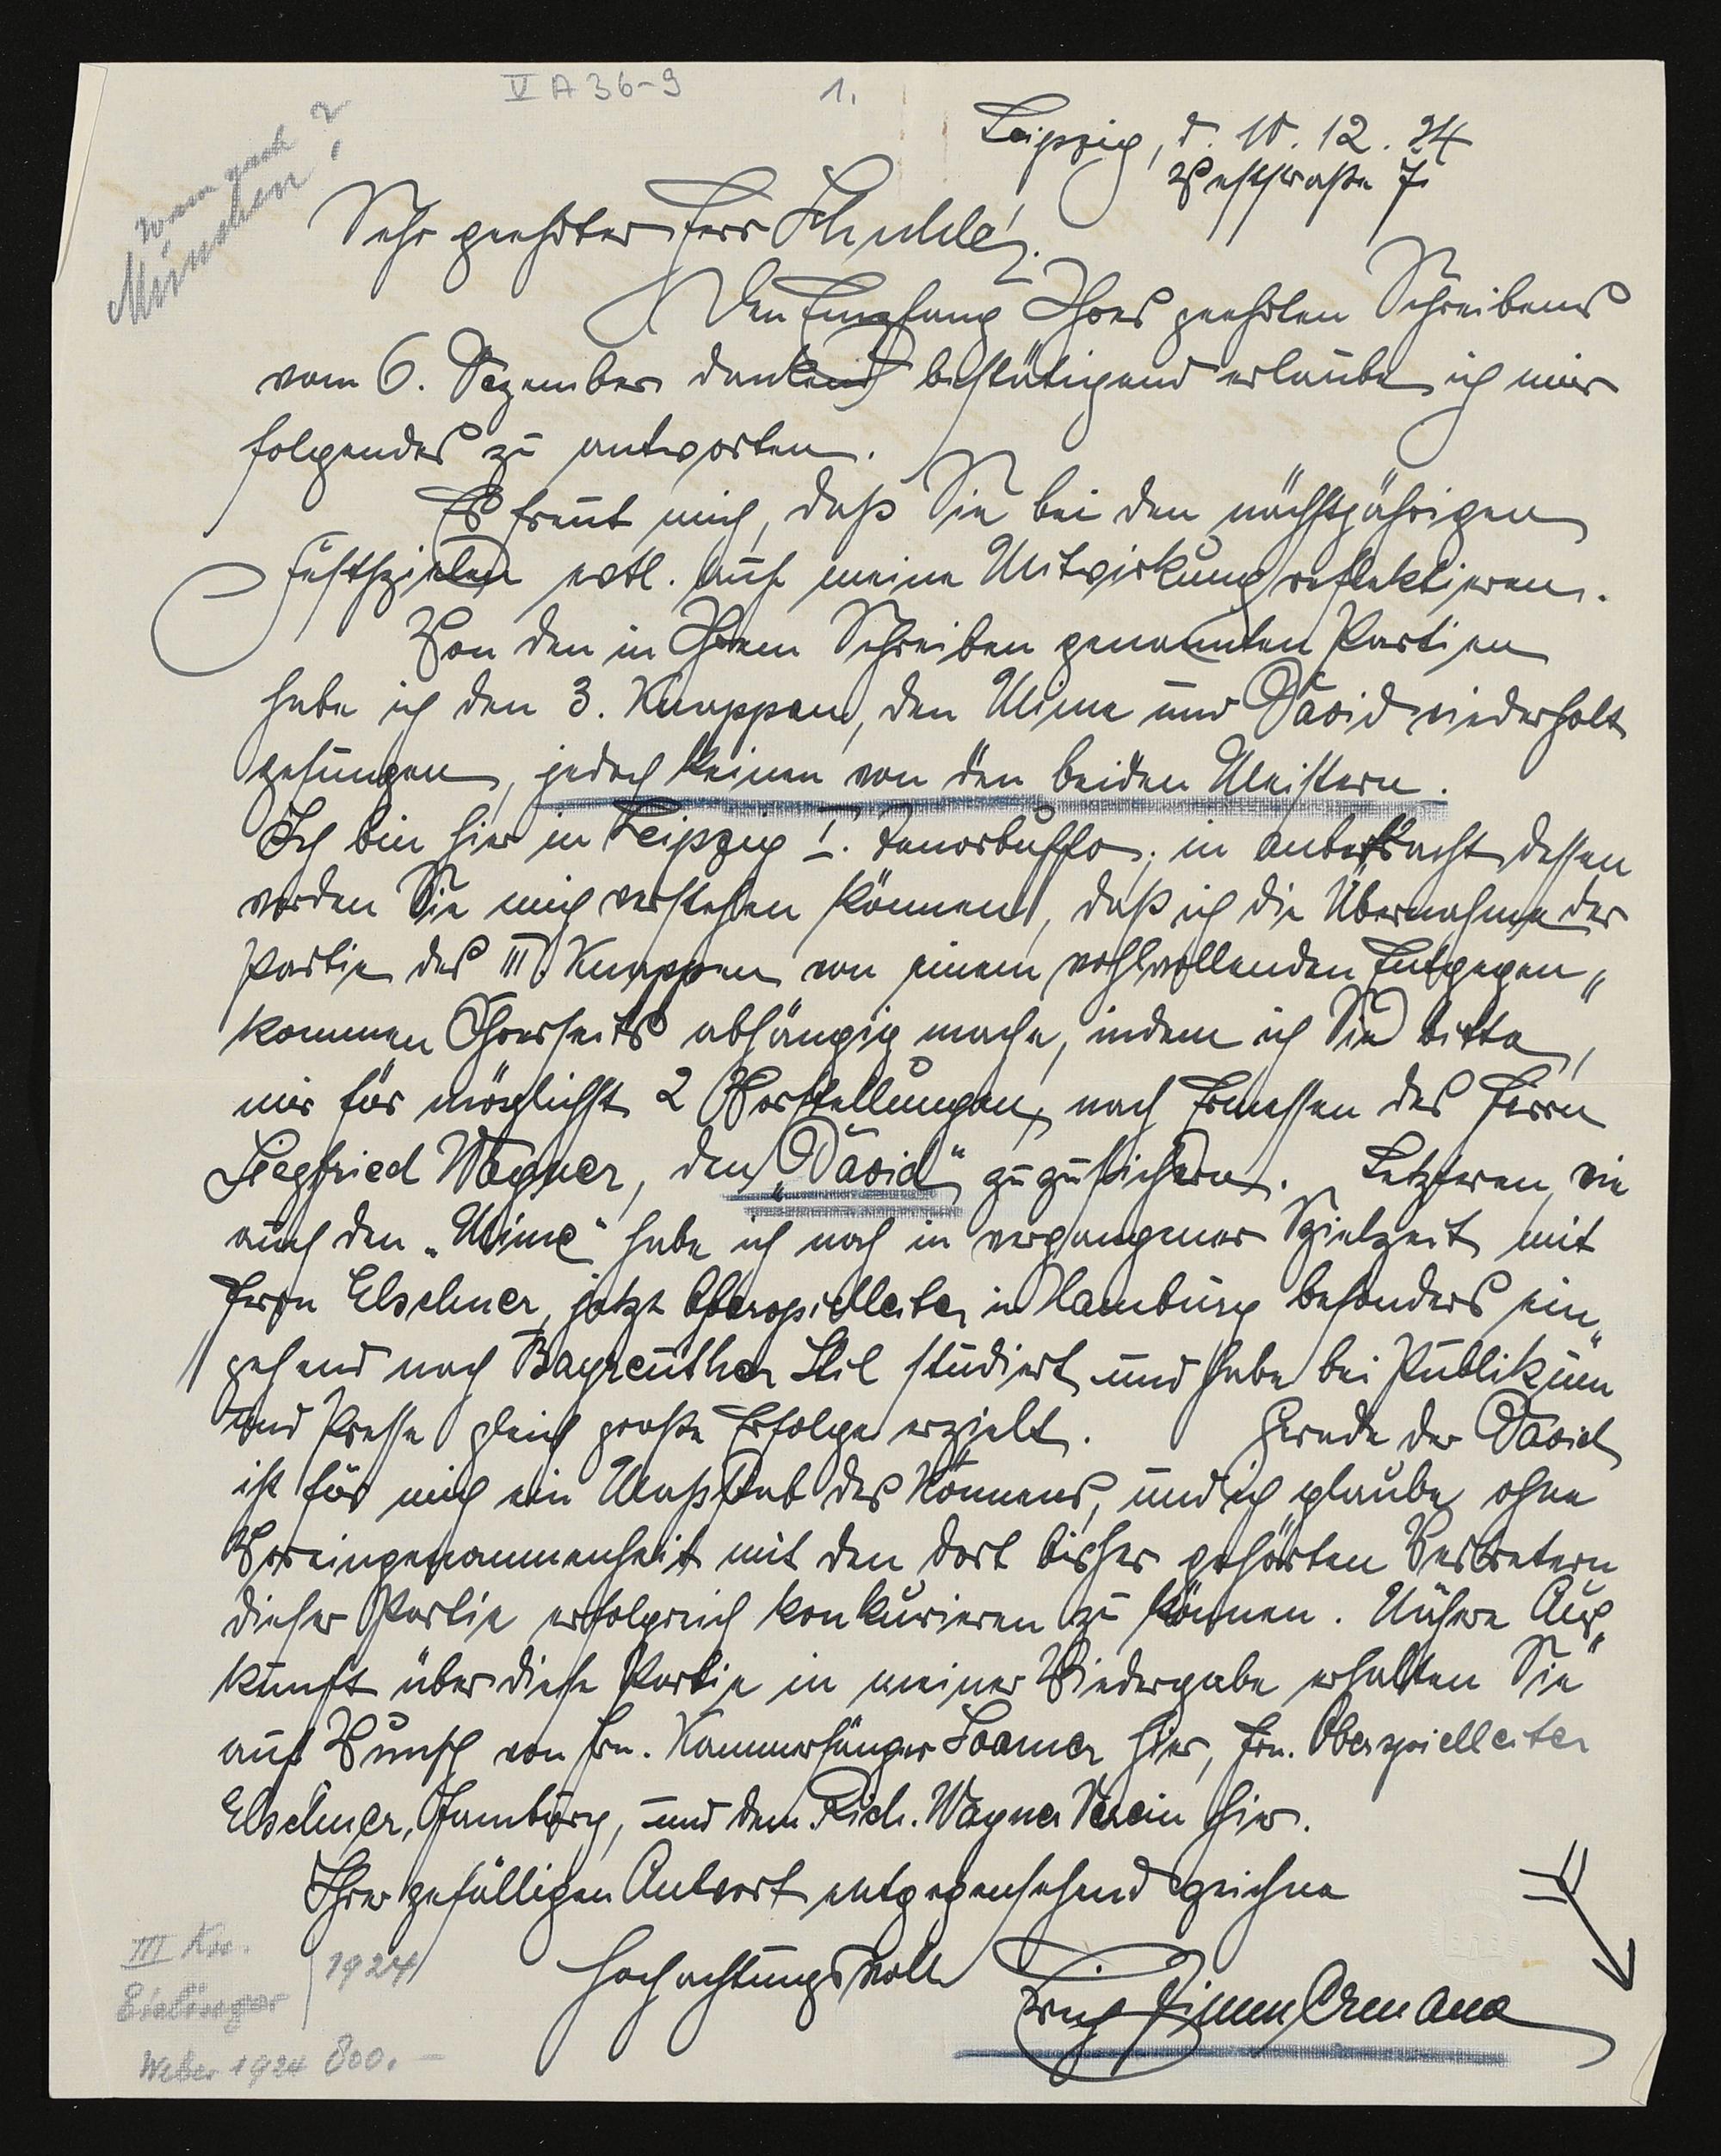 V A 36-9
1.
wann nach ?
München?
Leipzig, d. 10. 12. 24
Weststraße 7I
Sehr geehrter Herr Schuldé!
Den Empfang Ihres geehrten Schreibens
vom 6. Dezember dankend bestätigend erlaube ich mir
folgendes zu antworten.
Es freut mich, daß Sie bei den nächstjährigen
Festspielen evtl. auf meine Mitwirkung reflektieren.
Von den in Ihrem Schreiben genannten Partien
habe ich den 3. Knappen, den Mime und David wiederholt
gesungen, jedoch keinen von den beiden Meistern.
Ich bin hier in Leipzig I. Tenorbuffo; in anbetracht dessen
werden Sie mich verstehen können, daß ich die Übernahme der
Partie des III. Knappen von einem wohlwollenden Entgegen„
kommen Ihrerseits abhängig mache, indem ich Sie bitte,
mir für möglichst 2 Vorstellungen, nach Ermessen des Herrn
Siegfried Wagner, den „David“ zuzusichern. Letzteren, wie
auch den „Mime“ habe ich noch in vergangener Spielzeit mit
Herrn Elschner, jetzt Oberspielleiter in Hamburg besonders ein„
gehend nach Bayreuther Stil studiert und habe bei Publikum
und Presse gleich große Erfolge erzielt. Gerade der David
ist für mich ein Maßstab des Könnens, und ich glaube ohne
Voreingenommenheit mit den dort bisher gehörten Vertretern
dieser Partie erfolgreich konkurieren zu können. Nähere Aus„
kunft über diese Partie in meiner Wiedergabe erhalten Sie
auf Wunsch von Hrn. Kammersänger Soomer hier, Hrn. Oberspielleiter
Elschner, Hamburg, und dem Rich. Wagner Verein hier.
Ihrer gefälligen Antwort entgegensehend zeichne
hochachtungsvoll
Erich Zimmermann
III Kn.
1924
Weber 1924 800.-